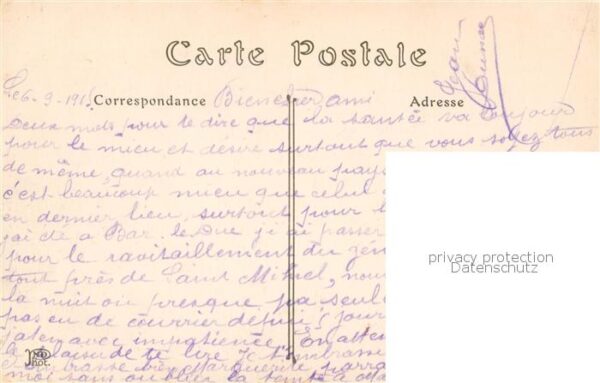 Carte Postale
Le 6-3-191
Correspondance Bien cher ami
Adresse
Jean
Deux mots pour te dire que la santée va toujour
pour le mieu et désire surtout que vous soyez tous
de même, quand au nouveau pays
c'est beaucoup mieu que celui
en dernier lieu, surtout pour
j'ai été a Bar. le Duc j'ai passer
pour le ravitaillement du gén
tout près de Saint Mihiel, nou
la nuit ou presque pa seul
pas eu de courrier depui jour
j'aten avec impatience. En atten
le plaisir de te lire je t'embrasse
embrasse bien Marguerite parra
moi sans oublier la tante a
privacy protection
Datenschutz